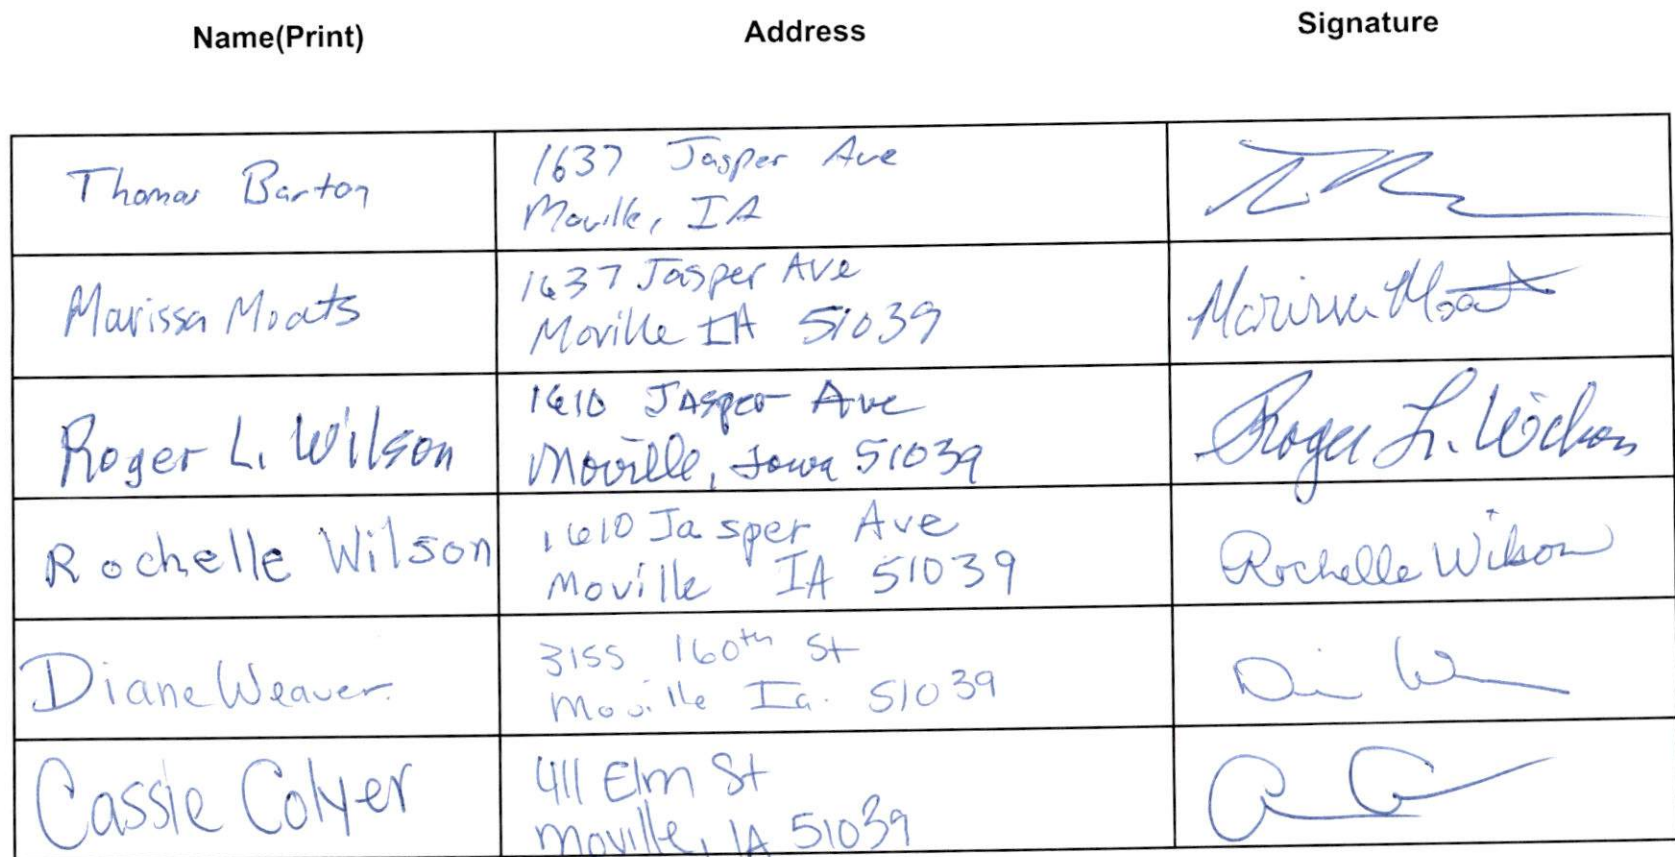 Name(Print) Address Signature
Thomas Barton
1637 Jasper Ave
Moville, IA
Marissa Moats
1637 Jasper Ave
Moville IA 51039
Marissa Moats
Roger L. Wilson
1610 Jasper Ave
Moville, Iowa 51039
Roger L. Wilson
Rochelle Wilson
1610 Jasper Ave
Moville IA 51039
Rochelle Wilson
Diane Weaver
3155 160th St
Moville Ia. 51039
Cassie Colyer
411 Elm St
Moville, IA 51039